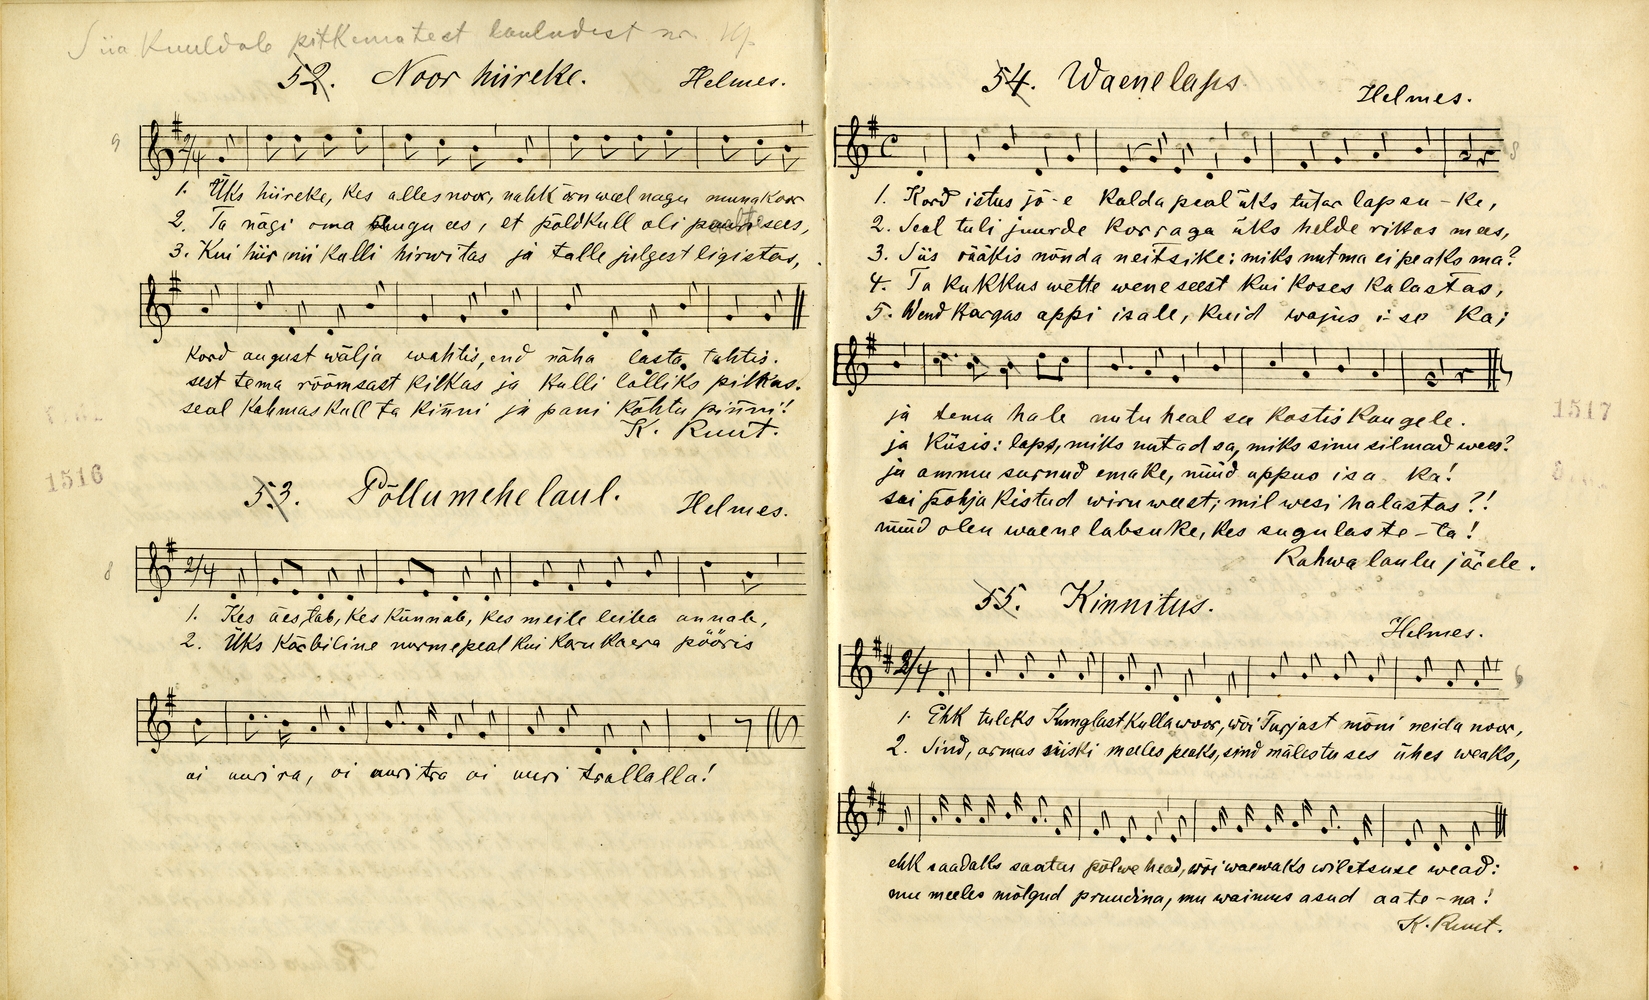 Siia kuuldab pitkematest lauludest nr. 19.
52. Noor hiireke. Helmes.
9
2/4
1. Üks hiireke, kes alles noor, nahk õrn weel nagu munakoor
2. Ta nägi oma augu ees, et põldkull oli puuri sees,
3. Kui hiir nii kulli hirwitas ja talle julgest ligistas,
kord august wälja wahtis, end näha lasta tahtis.
sest tema rõõmsast kilkas ja kulli lolliks pilkas.
seal kahmas kull ta kinni ja pani kõhtu pinni!
K. Ruut.
1516
53. Põllumehe laul. Helmes.
8
2/4
1. Kes äestab, kes künnab, kes meile leiba annab,
2. Üks kärbiline nurme peal kui karu kaera pööris
ai uurira, oi uuritra ai uuri trallalla!
54. Waenelaps. Helmes.
C
8
1. Kord istus jõ-e kalda peal üks tütar lapsu-ke,
2. Seal tuli juurde korraga üks helde rikas mees,
3. Siis rääkis nõnda neitsike: miks nutma ei peaks ma?
4. Ta kukkus wette wene seest kui koses kalastas,
5. Wend kargas appi isale, kuid wajus i-se ka;
ja tema hale nutu heal see kostis kaugele.
ja küsis: laps, miks nutad sa, miks sinu silmad wees?
ja ammu surnud emake, nüüd uppus isa ka!
sai põhja kistud wiru weest; mil wesi halastas?!
nüüd olen waene labsuke, kes sugulaste-ta!
Rahwa laulu järele.
1517
55. Kinnitus.
Helmes.
2/4
6
1. Ehk tuleks Kunglast kulla woor, wõi Turjast mõni neidu noor,
2. Sind, armas siiski meeles peaks, sind mälestuses ühes weaks,
ehk saadaks saatus põlwe head, wõi waewaks wiletsuse wead:
mu meeles mõlgud pruudina, mu waimus asud aate-na!
K. Ruut.